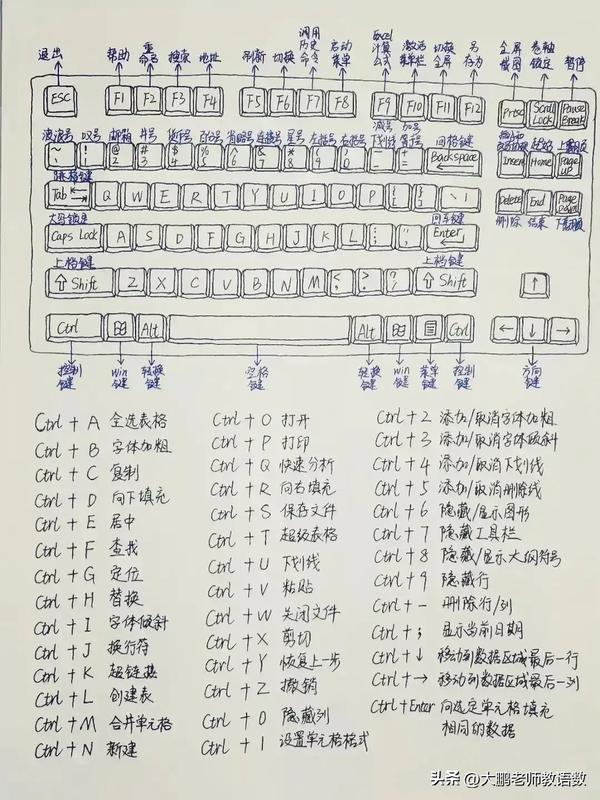 退出 帮助 重命名 搜索 地址 刷新 切换 调用历史命令 启动菜单 Excel计算公式 激活菜单栏 切换全屏 另存为 全屏截图 卷轴锁定 暂停
ESC F1 F2 F3 F4 F5 F6 F7 F8 F9 F10 F11 F12 Prtsc Scroll Lock Pause Break
波浪号 叹号 邮箱 井号 货币号 百分号 省略号 连接号 星号 左括号 右括号 减号下划线 加号等号 回格键 起始 上翻页
~ ` ! 1 @ 2 # 3 $ 4 % 5 ^ 6 & 7 * 8 ( 9 ) 0 - + = Backspace Insert Home Page up
跳格键
Tab Q W E R T Y U I O P { [ } ] \ | Delete End Page Down
大写锁定 回车键 删除 结束 下翻页
Caps Lock A S D F G H J K L : ; " ' Enter
上档键 上档键
⇧ Shift Z X C V B N M < , > . ? / ⇧ Shift ↑
Ctrl Alt Alt Ctrl ← ↓ →
控制键 win键 转换键 空格键 转换键 win键 菜单键 控制键 方向键
Ctrl + A 全选表格
Ctrl + B 字体加粗
Ctrl + C 复制
Ctrl + D 向下填充
Ctrl + E 居中
Ctrl + F 查找
Ctrl + G 定位
Ctrl + H 替换
Ctrl + I 字体倾斜
Ctrl + J 换行符
Ctrl + K 超链接
Ctrl + L 创建表
Ctrl + M 合并单元格
Ctrl + N 新建
Ctrl + O 打开
Ctrl + P 打印
Ctrl + Q 快速分析
Ctrl + R 向右填充
Ctrl + S 保存文件
Ctrl + T 超级表格
Ctrl + U 下划线
Ctrl + V 粘贴
Ctrl + W 关闭文件
Ctrl + X 剪切
Ctrl + Y 恢复上一步
Ctrl + Z 撤销
Ctrl + 0 隐藏列
Ctrl + 1 设置单元格格式
Ctrl + 2 添加/取消字体加粗
Ctrl + 3 添加/取消字体倾斜
Ctrl + 4 添加/取消下划线
Ctrl + 5 添加/取消删除线
Ctrl + 6 隐藏/显示图形
Ctrl + 7 隐藏工具栏
Ctrl + 8 隐藏/显示大纲符号
Ctrl + 9 隐藏行
Ctrl + - 删除行/列
Ctrl + ; 显示当前日期
Ctrl + ↓ 移动到数据区域最后一行
Ctrl + → 移动到数据区域最后一列
Ctrl + Enter 向选定单元格填充
相同的数据
头条 @大鹏老师教语数